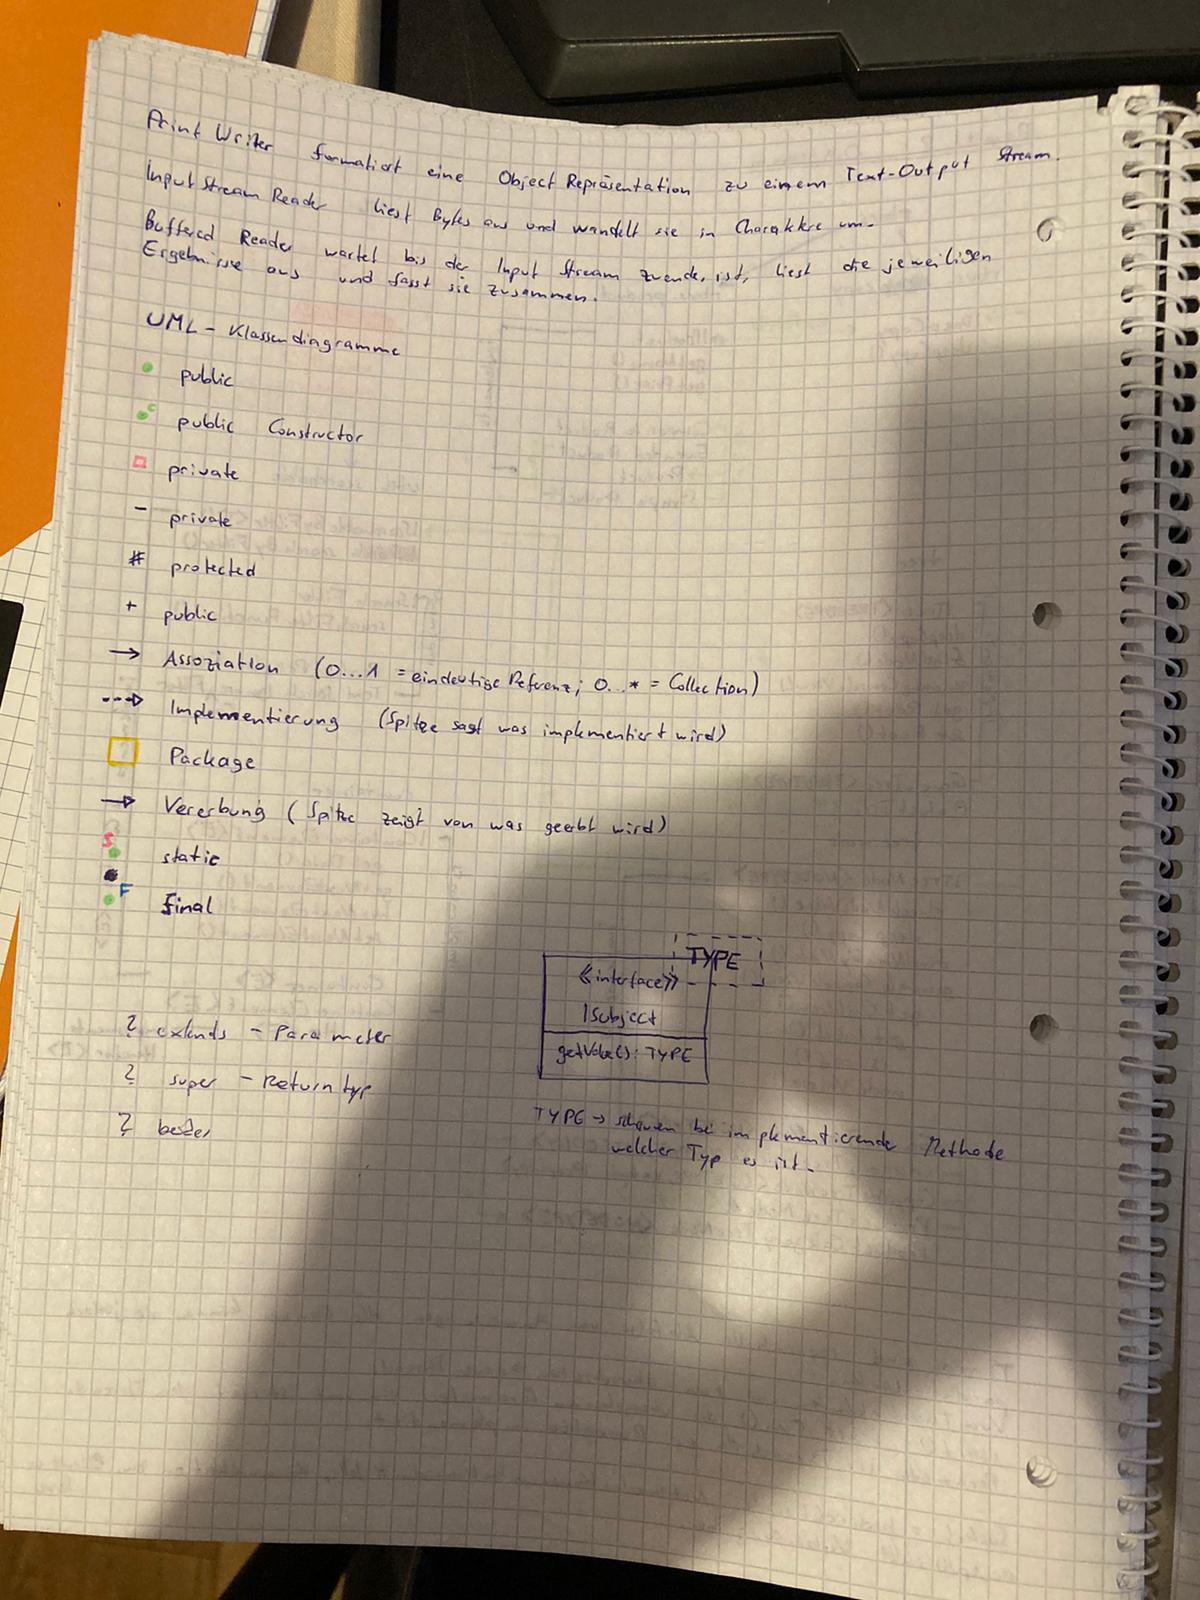 Print Writer formatiert eine Object Repräsentation zu einem Text-Output Stream.
Input Stream Reader liest Bytes aus und wandelt sie in Charaktere um.
Buffered Reader wartet bis der Input Stream zuende ist, liest die jeweiligen
Ergebnisse aus und fasst sie zusammen.
UML - Klassendiagramme
public
C public Constructor
private
- private
# protected
+ public
→ Assoziation (0...1 = eindeutige Referenz; 0...* = Collection)
Implementierung (Spitze sagt was implementiert wird)
Package
Vererbung (Spitze zeigt von was geerbt wird)
S static
F final
TYPE
«interface»
ISubject
getValue(): TYPE
? extends - Parameter
? super - Returntyp
? beides
TYPE → schauen bei implementierende Methode
welcher Typ es ist.